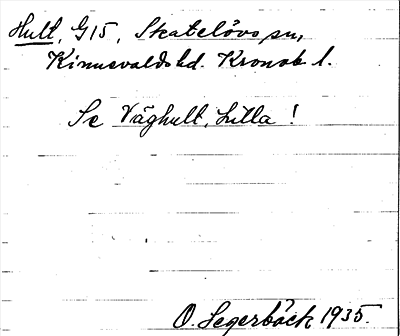 Hult, G 15, Skatelövs sn,
Kinnevalds hd. Kronob. l.
Se Våghult, Lilla!
O. Segerbäck 1935.